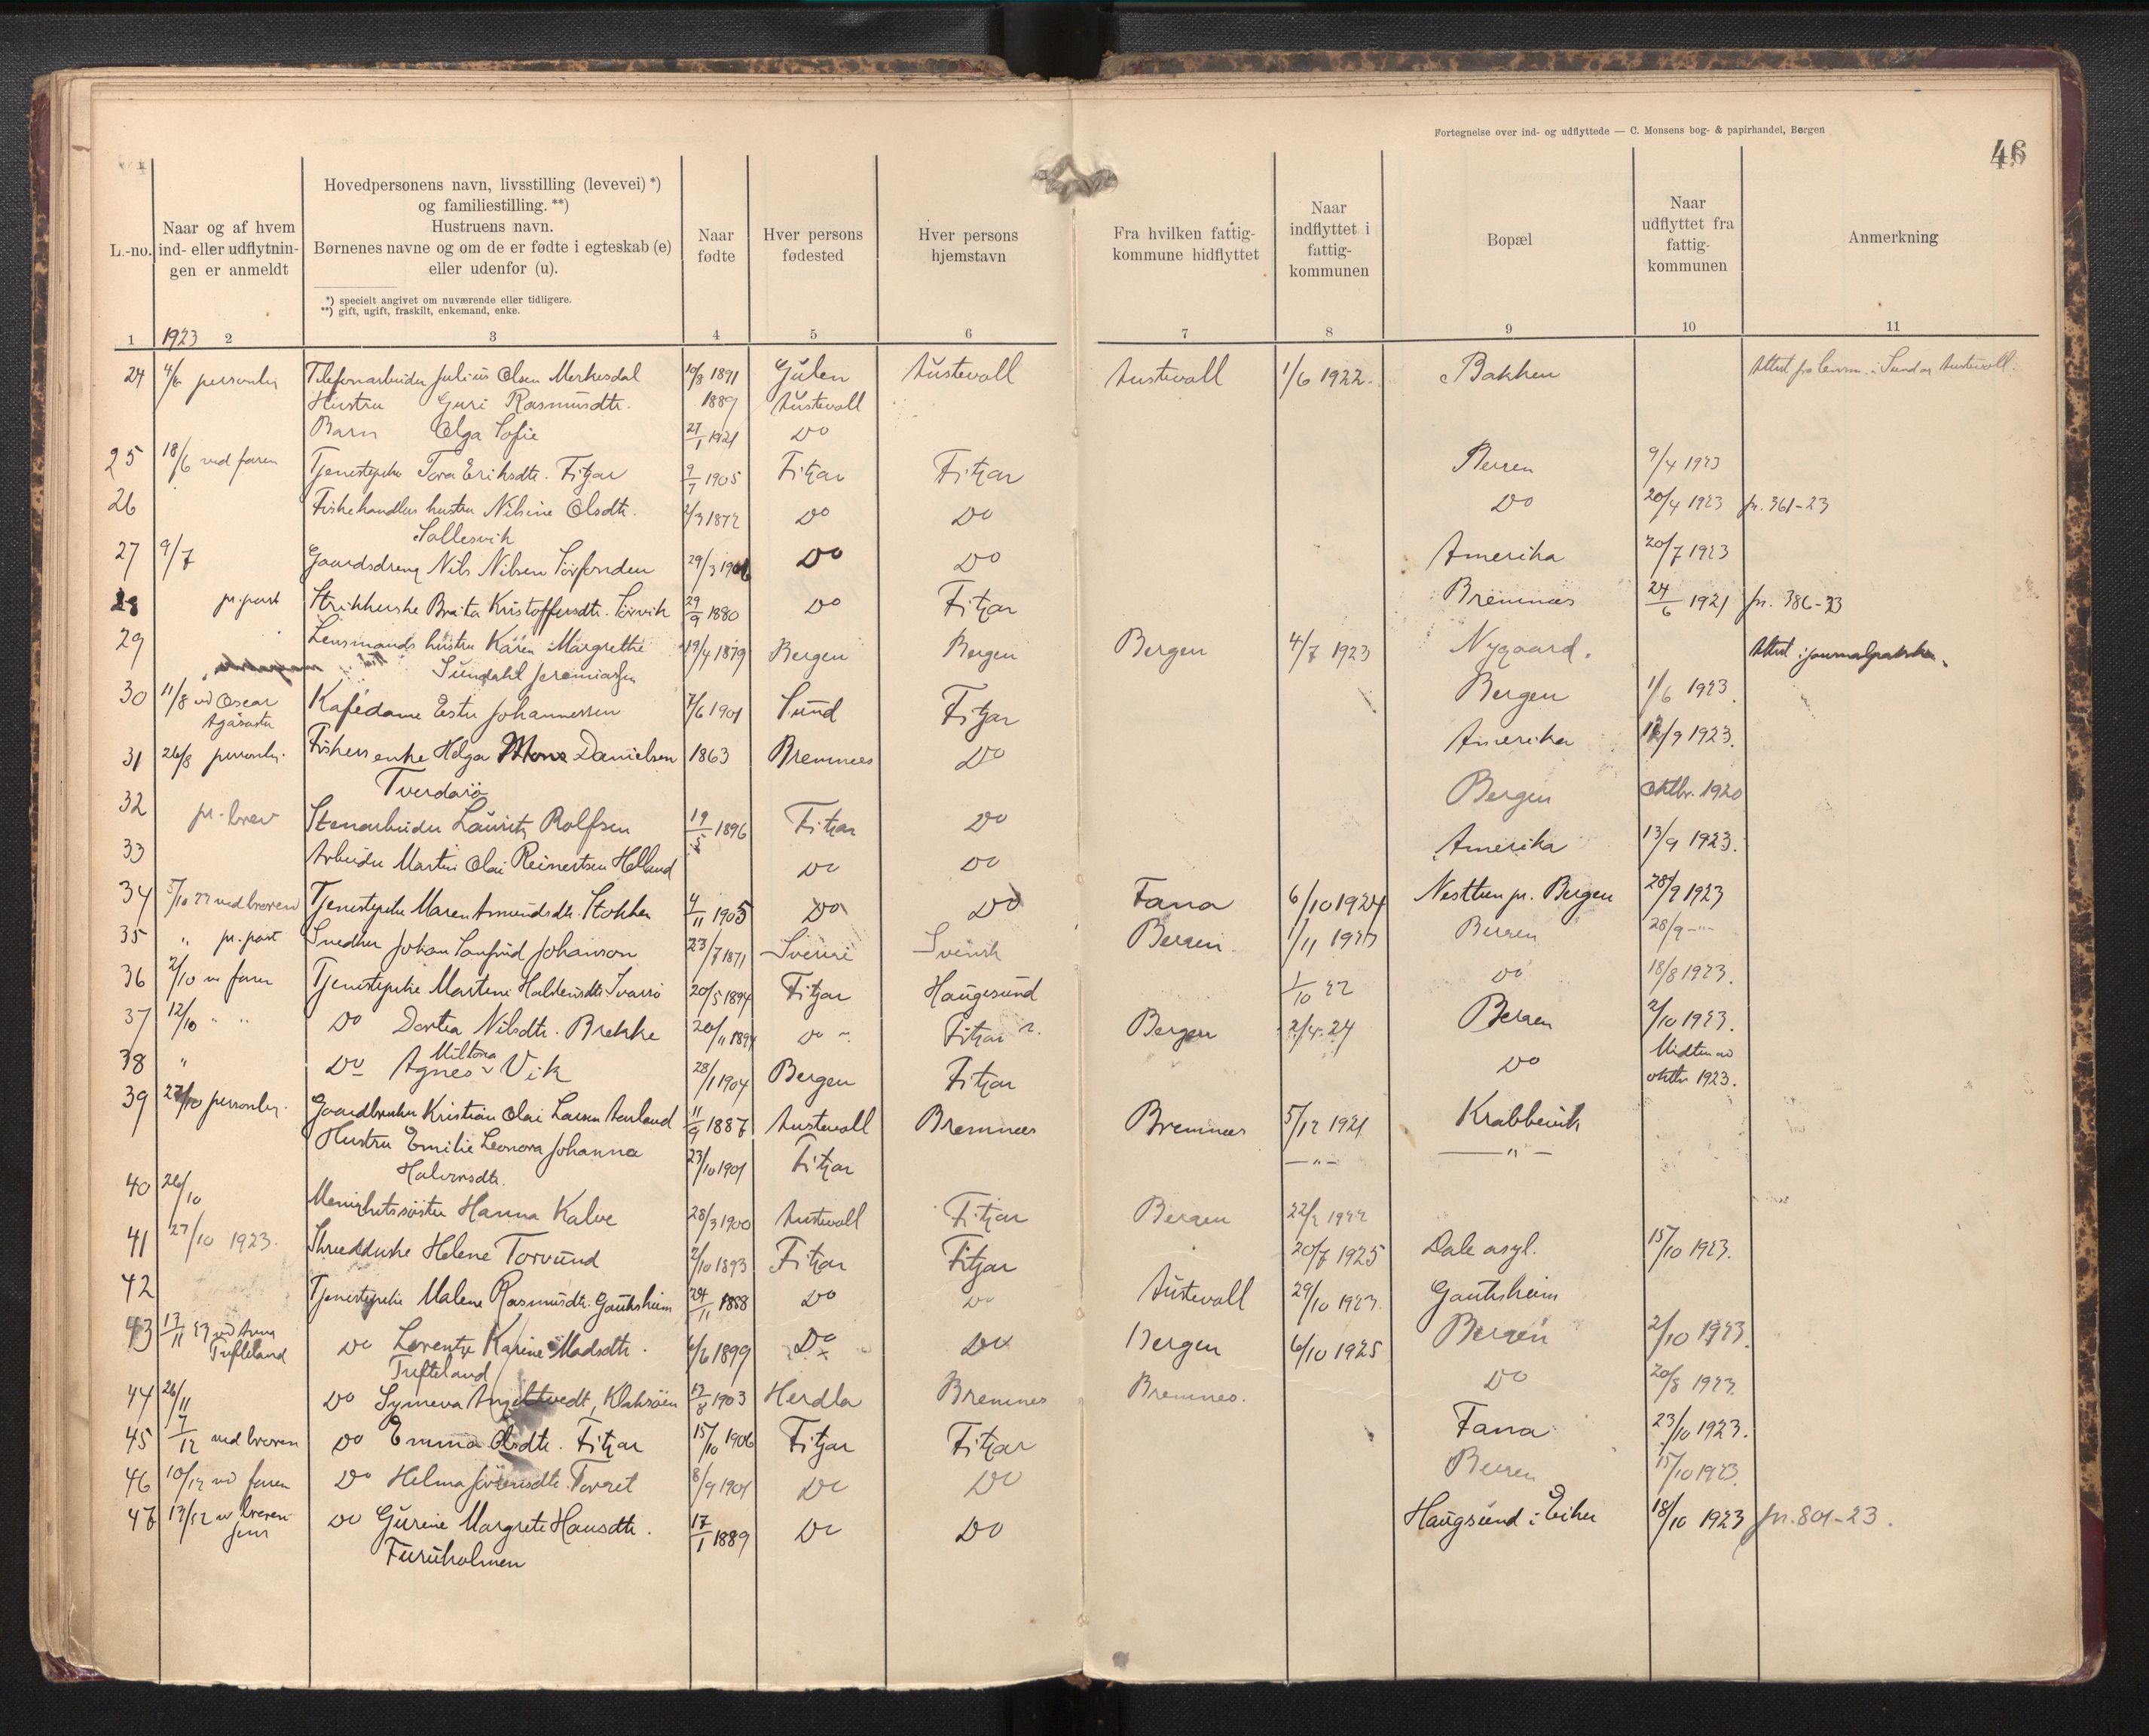 Fortegnelse over ind- og udflyttede — C. Monsens bog- & papirhandel, Bergen
46
L.-no.
Naar og af hvem ind- eller udflytningen er anmeldt
Hovedpersonens navn, livsstilling (levevei) *) og familiestilling. **) Hustruens navn. Børnenes navne og om de er fødte i egteskab (e) eller udenfor (u).
*) specielt angivet om nuværende eller tidligere.
**) gift, ugift, fraskilt, enkemand, enke.
Naar fødte
Hver persons fødested
Hver persons hjemstavn
Fra hvilken fattigkommune hidflyttet
Naar indflyttet i fattigkommunen
Bopæl
Naar udflyttet fra fattigkommunen
Anmerkning
1 1923 2 3 4 5 6 7 8 9 10 11
24 4/6 personlig Telefonarbeider Julius Olsen Merkesdal 10/8 1891 Gulen Austevoll Austevoll 1/6 1922. Bakken Attest fra lensm. i Sund og Austevoll.
Hustru Guri Rasmusdtr. 1889 Austevoll
Barn Olga Sofie 27/1 1921 Do
25 18/6 ved faren Tjenestepike Tora Eriksdtr. Fitjar 9/7 1905 Fitjar Fitjar Bergen 9/4 1923
26 Fiskehandlers hustru Nilsine Olsdtr. 2/3 1872 Do Do Do 20/4 1923 jr. 361-23
Sallesvik
27 9/7 Gaardsdreng Nils Nilsen Sørfonden 29/3 Do Do Amerika 20/7 1923
28 pr. post Strikkerske Brita Kristoffersdtr. Sørvik 29/9 1880 Do Fitjar Bremnes 24/6 1921 jr. 386-23
29 Lensmands hustru Karen Margrethe 19/4 1879 Bergen Bergen Bergen 4/7 1923 Nygaard. Attest i journalpakken.
Sundahl Jeremiasen
30 11/8 ved Oscar Kafédame Ester Johannessen 7/6 1901 Sund Fitjar Bergen 1/6 1923.
Agasøster
31 26/8 personlig. Fiskers enke Helga Danielsen 1863 Bremnes Do Amerika 12/9 1923.
Tverdarø
32 pr. brev Stenarbeider Lauritz Rolfsen 19/5 1896 Fitjar Do Bergen oktbr. 1920
33 Arbeider Martin Olai Reinertsen Helland Do Do Amerika 13/9 1923.
34 5/10 23 ved broren Tjenestepike Maren Amundsdtr. Stokken 4/11 1905 Do Do Fana 6/10 1924 Nesttun pr. Bergen 28/9 1923
35 " pr. post Snedker Johan Johanson 23/7 1871 Sverige Svensk Bergen 1/11 1923 Bergen 28/9 -"-
36 2/10 v. faren Tjenestepike Martine Haldorsdtr. Ivarsø 20/5 1894 Fitjar Haugesund 1/10 22 Do 18/8 1923.
37 12/10 " " Do Dortea Nilsdtr. Brekke 20/11 1894 Do Fitjar Bergen 2/4-24 Bergen 2/10 1923.
38 " Do Agnes Miltona Vik 28/1 1904 Bergen Fitjar Do Midten av oktbr 1923.
39 27/10 personlig. Gaardbruker Kristian Olai Larsen Aarland 11/9 1887 Austevoll Bremnes Bremnes 5/12 1921 Krabbevik
Hustru Emilie Leonora Johanna 23/10 1901 Fitjar — " — — " —
Halvorsdtr.
40 26/10 Menighetssøster Hanna Kalve 28/3 1900 Austevoll Fitjar Bergen 22/2 1922
41 27/10 1923. Skrædderske Helene Torvund 2/10 1893 Fitjar Fitjar 20/7 1925 Dale asyl. 15/10 1923.
42 Tjenestepike Malene Rasmusdtr. Gauksheim 24/11 1888 Do Do Austevoll 29/10 1923. Gauksheim
43 13/11 23 ved Anna Do Lorentze Karine Madsdtr. 6/6 1899 Do Do Bergen 6/10 1925 Bergen 2/10 1923.
Tufteland Tufteland
44 26/11 Do Synneva, Klaksøen 13/8 1903 Herdla Bremnes Bremnes. Do 20/8 1923.
45 7/12 ved broren Do Emma Olsdtr. Fitjar 15/10 1906 Fitjar Fitjar Fana 23/10 1923.
46 10/12 ved faren Do Helma Sørensdtr. Torget 8/9 1901 Do Do Bergen 15/10 1923.
47 13/12 v. broren Do Gurine Margrete Hansdtr. 17/1 1889 Do Do Haugsund i Eiker 18/10 1923 jr. 801-23.
Jens Furuholmen